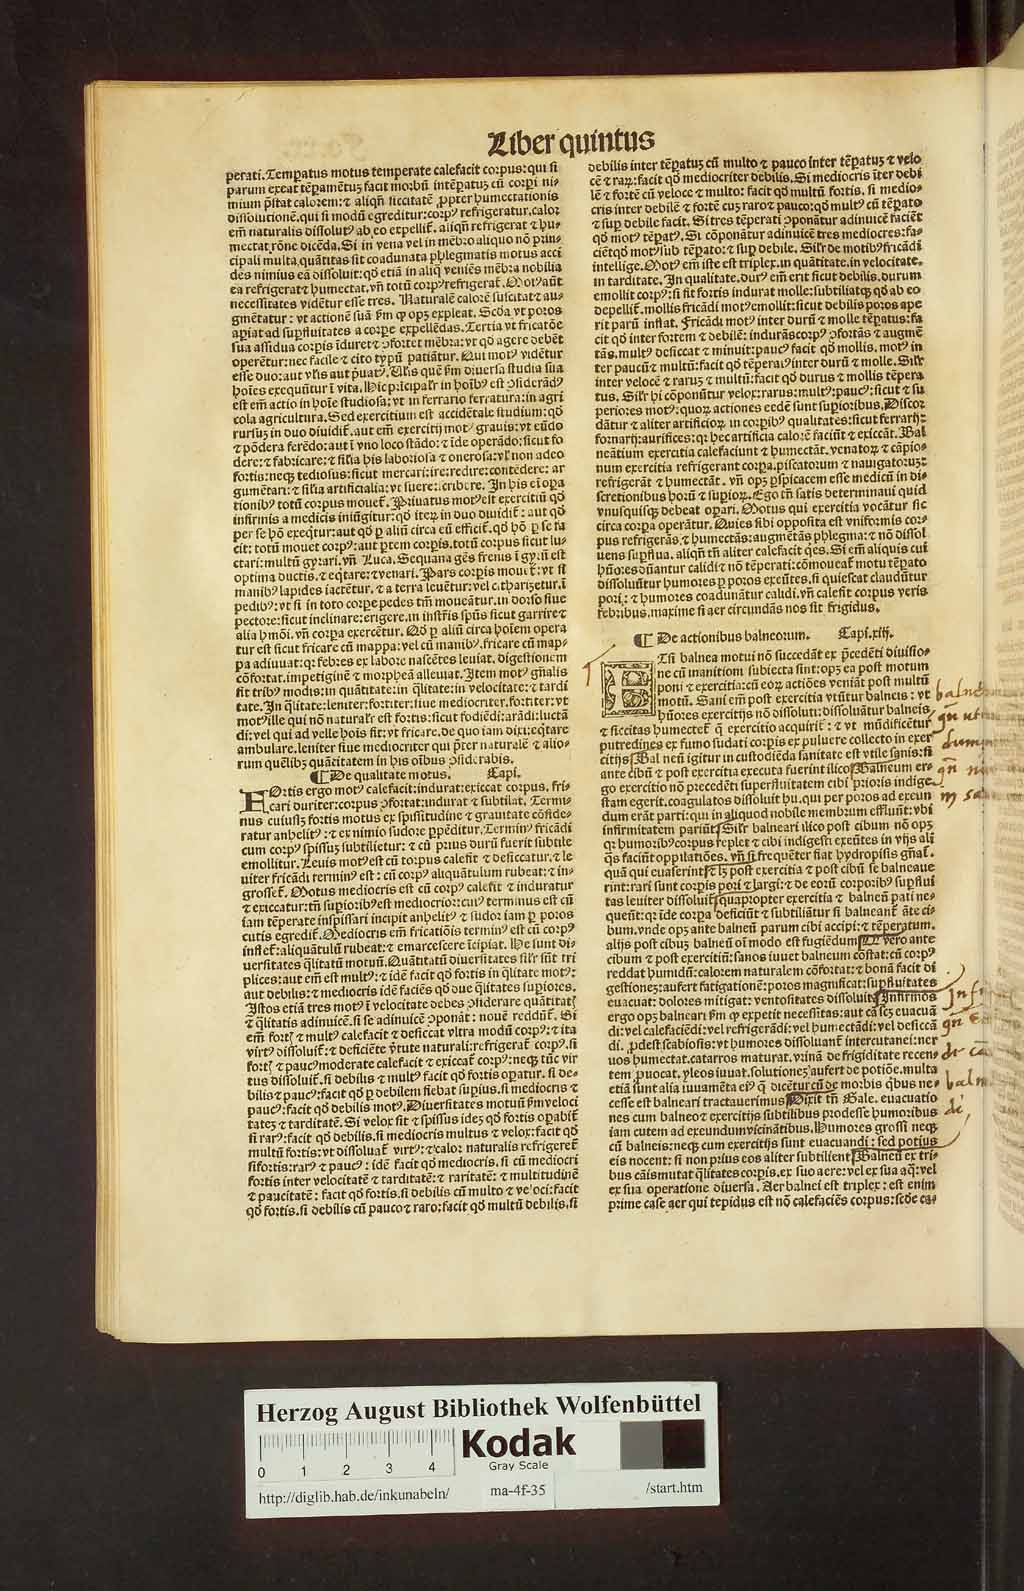 Liber quintus
perati. Temꝑatus motus temperate calefacit corpus: qui si
parum exeat tēꝑamētuʒ facit morbū intēꝑatuʒ cū corpī ni-
mium p̄stat calorem: ⁊ aliqn̄ siccitatē ꝓpter humectationis
dissolutionē. qui si modū egreditur: corpꝰ refrigeratur. calor
em̄ naturalis dissolutꝰ ab eo expellit̄. aliqn̄ refrigerat ⁊ hu-
mectat rōne dicēda. Si in vena vel in mēbro aliquo nō prin-
cipali multa quātitas sit coadunata phlegmatis motus acci
des nimius eā dissoluit: qd̄ etiā in aliq̄ veniēs mēbra nobilia
ea refrigerat ⁊ humectat. vn̄ totū corpꝰ refrigerat̄. Motꝰ aūt
necessitates vidētur esse tres. Naturalē calorē suscitat ⁊ au-
gmētatur: vt actionē suā ꝑm ꝙ opʒ expleat. Scd̄a vt poros
aꝑiat ad suꝑfluitates a corꝑe expellēdas. Tertia vt fricatōe
sua assidua corpus īduret ⁊ ꝯfortet mēbra: vt qd̄ agere debēt
operētur: nec facile ⁊ cito typū patiātur. Qui motꝰ vidētur
esse duo: aut vl̄is aut p̄uatꝰ. Vl̄is quē ꝑm diuersa studia sua
hoīes exequūtur ī vita. Hic p̄icipalr̄ in hoībꝰ est ꝯsiderādꝰ
est em̄ actio in hoīe studiosa: vt in ferrario ferratura: in agri
cola agricultura. Sed exercitium est accidētale studium: qd̄
rursuʒ in duo diuidit̄. aut em̄ exercitij motꝰ grauis: vt eūdo
⁊ pōdera ferēdo: aut ī vno loco stādo: ⁊ īde operādo: sicut fo
dere: ⁊ fabricare: ⁊ silia his laboriosa ⁊ onerosa: vl̄ non adeo
fortis: neqʒ tediosus: sicut mercari: ire: redire: contēdere: ar
gumētari: ⁊ silia artificialia: vt suere: scribere. In his eī opa
tionibꝰ totū corpus mouet̄. Priuatus motꝰ est exercitiū qd̄
infirmis a medicis iniūgitur: qd̄ iteꝝ in duo diuidit̄: aut qd̄
per se hō exeq̄tur: aut qd̄ ꝑ aliū circa eū efficit̄. qd̄ hō ꝑ se fa
cit: totū mouet corpꝰ: aut ꝑtem corpis. totū corpus sicut lu-
ctari: multū gyrari. vn̄ Luca. Sequana gēs frenis ī gyrū est
optima ductis. ⁊ eq̄tare: ⁊ venari. Pars corpis mouet̄: vt si
manibꝰ lapides iactētur. ⁊ a terra leuētur: vel citharizetur. ī
pedibꝰ: vt si in toto corpe pedes tm̄ moueātur. in dorso siue
pectore: sicut inclinare: erigere. in instr̄is spūs sicut garrire ⁊
alia hmōi. vn̄ corpa exercētur. Qd̄ ꝑ aliū circa hoīem opera
tur est sicut fricare cū mappa: vel cū manibꝰ. fricare cū map-
pa adiuuat: qꝛ febres ex labore nascētes leuiat. digestionem
cōfortat. impetiginē ⁊ morpheā alleuiat. Item motꝰ gn̄alis
fit tribꝰ modis: in quātitate: in q̄litate: in velocitate: ⁊ tardi
tate. In q̄litate: leniter: fortiter: siue mediocriter. fortiter: vt
motꝰ ille qui nō naturalr̄ est fortis: sicut fodiēdi: arādi: luctā
di: vel qui ad velle hoīs fit: vt fricare. de quo iam dixi: eq̄tare
ambulare. leniter siue mediocriter qui p̄ter naturalē ⁊ alio-
rum quēlibʒ quātitatem in his oībus ꝯsiderabis.
¶ De qualitate motus. Capī.
FOrtis ergo motꝰ calefacit: indurat: exiccat corpus. fri-
cari duriter: corpus ꝯfortat: indurat ⁊ subtilat. Termi-
nus cuiusʒ fortis motus ex spissitudine ⁊ grauitate cōside-
ratur anhelitꝰ: ⁊ ex nimio sudore ꝑpēditur. Terminꝰ fricādi
cum corpꝰ spissuʒ subtilietur: ⁊ cū prius durū fuerit subtile
emollitur. Leuis motꝰ est cū corpus calefit ⁊ desiccatur. ⁊ le
uiter fricādi terminꝰ est: cū corpꝰ aliquātulum rubeat: ⁊ in-
grosset̄. Motus mediocris est cū corpꝰ calefit ⁊ induratur
⁊ exiccatur: tn̄ superioribꝰ est mediocrior: cuiꝰ terminus est cū
iam tēperate inspissari incipit anhelitꝰ ⁊ sudor iam ꝑ poros
cutis egredit̄. Mediocris em̄ fricatiōis terminꝰ est cū corpꝰ
inflet̄: aliquātulū rubeat: ⁊ emarcescere īcipiat. He sunt di-
uersitates q̄litatū motuū. Quātitatū diuersitates silr̄ sūt tri
plices: aut em̄ est multꝰ: ⁊ idē facit qd̄ fortis in q̄litate motꝰ:
aut debilis: ⁊ mediocris idē faciēs qd̄ due q̄litates supiores.
Istos etiā tres motꝰ ī velocitate debes ꝯsiderare quātitatē
⁊ q̄litatis adinuicē. si se adinuicē ꝯponāt: nouē reddūt̄. Si
em̄ fortꝭ ⁊ multꝰ calefacit ⁊ desiccat vltra modū corpꝰ: ⁊ ita
virtꝰ dissoluit̄: ⁊ deficiēte v̄tute naturali: refrigerat̄ corpꝰ. si
fortꝭ ⁊ paucꝰ moderate calefacit ⁊ exiccat̄ corpꝰ: neqʒ tūc vir
tus dissoluit̄. si debilis ⁊ multꝰ facit qd̄ fortis oꝑatur. si de-
bilis ⁊ paucꝰ: facit qd̄ ꝑ debilem fiebat supius. si mediocris ⁊
paucꝰ: facit qd̄ debilis motꝰ. Diuersitates motuū ꝑm veloci
tateʒ ⁊ tarditatē. Si velox sit ⁊ spissus ideʒ qd̄ fortis oꝑabit̄
si rarꝰ: facit qd̄ debilis. si mediocris multus ⁊ velox: facit qd̄
multū fortis: vt dissoluat̄ virtꝰ: ⁊ calor naturalis refrigeret̄
si fortis: rarꝰ ⁊ paucꝰ: idē facit qd̄ mediocris. si cū mediocri
fortis inter velocitatē ⁊ tarditatē: ⁊ raritatē: ⁊ multitudinē
⁊ paucitatē: facit qd̄ fortis. si debilis cū multo ⁊ veloci: facit
qd̄ fortis. si debilis cū pauco ⁊ raro: facit qd̄ multū debilis. si
debilis inter tēꝑatuʒ cū multo ⁊ pauco inter tēꝑatuʒ ⁊ velo
cē ⁊ raꝝ: facit qd̄ mediocriter debilis. Si mediocris īter debi
lē ⁊ fortē cū veloce ⁊ multo: facit qd̄ multū fortis. si medio-
cris inter debilē ⁊ fortē cuʒ raro ⁊ pauco: qd̄ multꝰ cū tēꝑato
⁊ suꝑ debile facit. Si tres tēperati ꝯponātur adinuicē faciēt
qd̄ motꝰ tēꝑatꝰ. Si cōponātur adinuicē tres mediocres: fa-
ciēt qd̄ motꝰ sub tēꝑato: ⁊ suꝑ debile. Silr̄ de motibꝰ fricādi
intellige. Motꝰ em̄ iste est triplex. in quātitate. in velocitate.
in tarditate. In qualitate. durꝰ em̄ erit sicut debilis. durum
emollit corpꝰ: si fit fortis indurat molle: subtiliatqʒ qd̄ ab eo
depellit̄. mollis fricādi motꝰ emollit: sicut debilis poros ape
rit parū inflat. Fricādi motꝰ inter durū ⁊ molle tēꝑatus: fa
cit qd̄ inter fortem ⁊ debilē: indurās corpꝰ ꝯfortās ⁊ augmē
tās. multꝰ desiccat ⁊ minuit: paucꝰ facit qd̄ mollis. motꝰ in
ter paucū ⁊ multū: facit qd̄ tēperatꝰ inter durū ⁊ molle. Silr̄
inter velocē ⁊ raruʒ ⁊ multū: facit qd̄ durus ⁊ mollis tēpera
tus. Silr̄ hi cōponūtur velox: rarus: multꝰ: paucꝰ: sicut ⁊ su
periores motꝰ: quoꝝ actiones eedē sunt suꝑioribus. Discor
dātur ⁊ aliter artificioꝝ in corpibꝰ qualitates: sicut ferrarij:
fornarij: aurifices: qꝛ hec artificia calorē faciūt ⁊ exiccāt. Bal
neātium exercitia calefaciunt ⁊ humectāt. venatoꝝ ⁊ cāpio-
num exercitia refrigerant corpa. piscatorum ⁊ nauigatoruʒ:
refrigerāt ⁊ humectāt. vn̄ opʒ ꝑspicacem esse medicū in di-
scretionibus horū ⁊ suꝑioꝝ. Ego tn̄ satis determinaui quid
vnusquisqʒ debeat oꝑari. Motus qui exercitia vocātur sic
circa corpa operātur. Quies sibi opposita est vniformis cor-
pus refrigerās. ⁊ humectās: augmētās phlegma: ⁊ nō dissol
uens suꝑflua. aliqn̄ tn̄ aliter calefacit q̄es. Si em̄ aliquis cui
hūores dn̄antur calidi ⁊ nō tēperati: cōmoueat̄ motu tēꝑato
dissoluūtur humores ꝑ poros exeūtes. si quiescat claudūtur
pori: ⁊ humores coadunātur calidi. vn̄ calefit corpus veris
febribus. maxime si aer circundās nos sit frigidus.
¶ De actionibus balneorum. Capī. xiij.
ETsi balnea motui nō succedāt ex p̄cedēti diuisio-
ne cū manitioni subiecta sint: opʒ ea post motum
poni ⁊ exercitia: cū eoꝝ actiōes veniāt post multū
motū. Sani em̄ post exercitia vtūtur balneis: vt
hūores exercitijs nō dissoluti: dissoluātur balneis,
⁊ siccitas humectet̄ q̄ exercitio acquirit̄: ⁊ vt mūdificētur
putredines ex fumo sudati corpis ex puluere collecto in exer
citijs Balneū igitur in custodiēda sanitate est vtile sanis: si
ante cibū ⁊ post exercitia executa fuerint ilico Balneum er-
go exercitio nō precedēti superfluitatem cibi prioris indige-
stam egerit. coagulatos dissoluit hu. qui per poros ad exeun
dum erāt parti: qui in aliquod nobile membrum effluūt: vbi
infirmitatem pariūt Silr̄ balneari ilico post cibum nō opʒ
qꝛ humoribꝰ corpus replet ⁊ cibi indigesti exeūtes in vijs ali
q̄s faciūt oppilatiōes. vn̄ si frequēter fiat hydropisis gn̄at̄.
quā qui euaserint ⁊ lʒ post exercitia ⁊ post cibū se balneaue
rint: rari sunt corpis pori ⁊ largi: ⁊ de eorū corporibꝰ suꝑflui
tas leuiter dissoluit̄ quapropter exercitia ⁊ balneū pati ne-
queūt: qꝛ īde corpa deficiūt ⁊ subtiliātur si balneant̄ āte ci-
bum. vnde opʒ ante balneū parum cibi accipi: ⁊ tēperatum.
alijs post cibuʒ balneū oī modo est fugiēdum Tu vero ante
cibum ⁊ post exercitiū: sanos iuuet balneum cōstat: cū corpꝰ
reddat humidū: calorem naturalem cōfortat: ⁊ bonā facit di
gestionē: aufert fatigationē: poros magnificat: suꝑfluitates
euacuat: dolores mitigat: ventositates dissoluit Infirmos
ergo opʒ balneari ꝑm ꝙ expetit necessitas: aut cā scʒ euacuā
di: vel calefaciēdi: vel refrigerādi: vel humectādi: vel desiccā
di. ꝓdest scabiosis: vt humores dissoluant̄ intercutanei: ner
uos humectat. catarros maturat. vrinā de frigiditate recen-
tem ꝓuocat. yleos iuuat. solutionē aufert de potiōe. multa
etiā sunt alia iuuamēta eiꝰ q̄ dicētur cū de morbis q̄bus ne-
cesse est balneari tractauerimus Dixit tn̄ Gale. euacuatio
nes cum balneo ⁊ exercitijs subtilibus prodesse humoribus
iam cutem ad exeundum vicinātibus. Humores grossi neqʒ
cū balneis: neqʒ cum exercitijs sunt euacuandi: sed potius
eis nocent: si non prius eos aliter subtilient Balneū ex tri-
bus cāis mutat q̄litates corpis. ex suo aere: vel ex sua aq̄: vel
ex sua operatione diuersa. Aer balnei est triplex: est enim
prime case aer qui tepidus est nō calefaciēs corpus: scd̄e ca-
Herzog August Bibliothek Wolfenbüttel
0 1 2 3 4
Kodak
Gray Scale
http://diglib.hab.de/inkunabeln/ ma-4f-35 /start.htm